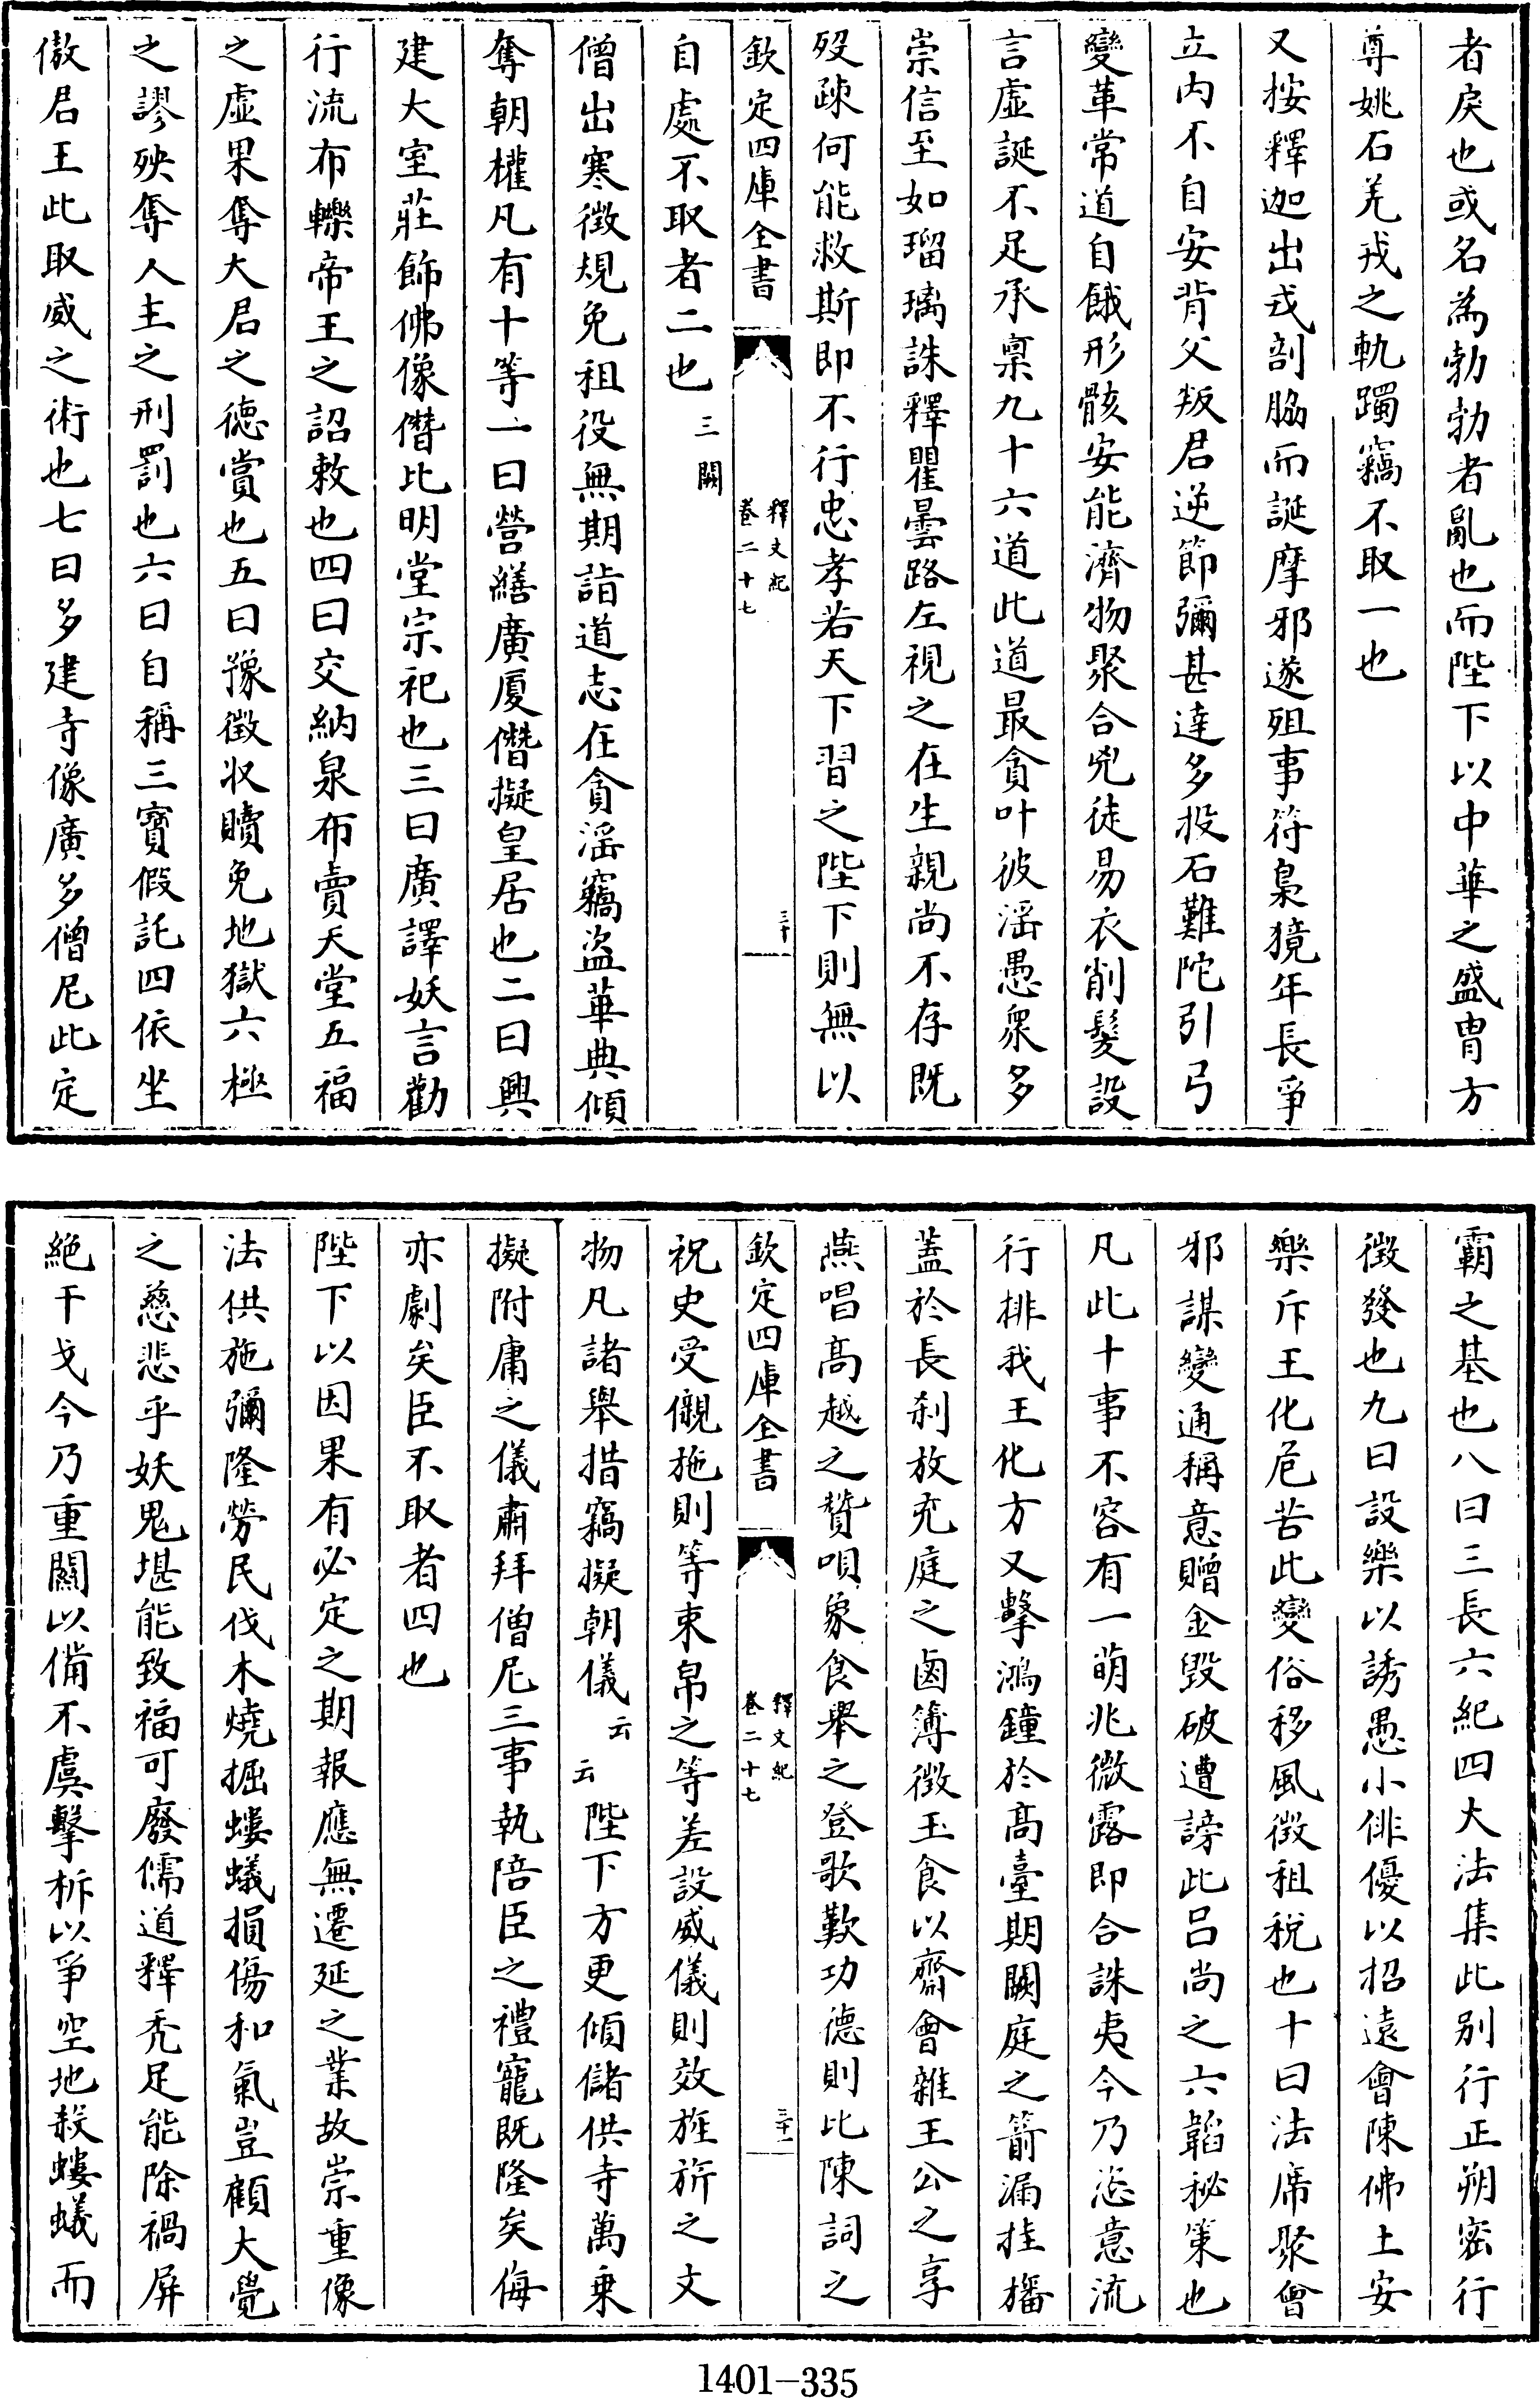 者戾也或名為勃勃者亂也而陛下以中華之盛胄方
尊姚石羌戎之軌躅竊不取一也
又按釋迦出戎剖脇而誕摩邪遂殂事符梟獍年長爭
立内不自安背父叛君逆節彌甚達多投石難陀引弓
變革常道自餓形骸安能濟物聚合兇徒易衣削髮設
言虛誕不足承稟九十六道此道最貪叶彼滛愚衆多
崇信至如瑠璃誅釋瞿曇路左視之在生親尚不存既
歿疎何能救斯即不行忠孝若天下習之陛下則無以
欽定四庫全書
釋文紀
卷二十七
三十
自處不取者二也三闕
僧出寒微規免租役無期詣道志在貪滛竊盗華典傾
奪朝權凡有十等一曰營繕廣厦僭擬皇居也二曰興
建大室莊飾佛像僭比明堂宗祀也三曰廣譯妖言勸
行流布轢帝王之詔敕也四曰交納泉布賣天堂五福
之虛果奪大君之德賞也五曰豫徵收贖免地獄六極
之謬殃奪人主之刑罰也六曰自稱三寳假託四依坐
傲君王此取威之術也七曰多建寺像廣多僧尼此定
霸之基也八曰三長六紀四大法集此别行正朔密行
徵發也九曰設樂以誘愚小俳優以招遠會陳佛土安
樂斥王化危苦此變俗移風徵租稅也十曰法席聚會
邪謀變通稱意贈金毁破遭謗此吕尚之六韜秘策也
凡此十事不容有一萌兆微露即合誅夷今乃恣意流
行排我王化方又擊鴻鐘於高臺期闕庭之箭漏挂旛
蓋於長刹放充庭之鹵簿徵玉食以齋會雜王公之享
燕唱高越之贊唄象食舉之登歌歎功德則比陳詞之
欽定四庫全書
釋文紀
卷二十七
三十一
祝史受儭施則等束帛之等差設威儀則效旌旂之文
物凡諸舉措竊擬朝儀云云陛下方更傾儲供寺萬乗
擬附庸之儀肅拜僧尼三事執陪臣之禮寵既隆矣侮
亦劇矣臣不取者四也
陛下以因果有必定之期報應無遷延之業故崇重像
法供施彌隆勞民伐木燒掘螻蟻損傷和氣豈顧大覺
之慈悲乎妖鬼堪能致福可廢儒道釋秃足能除禍屏
絶干戈今乃重關以備不虞擊柝以爭空地殺螻蟻而
1401-335